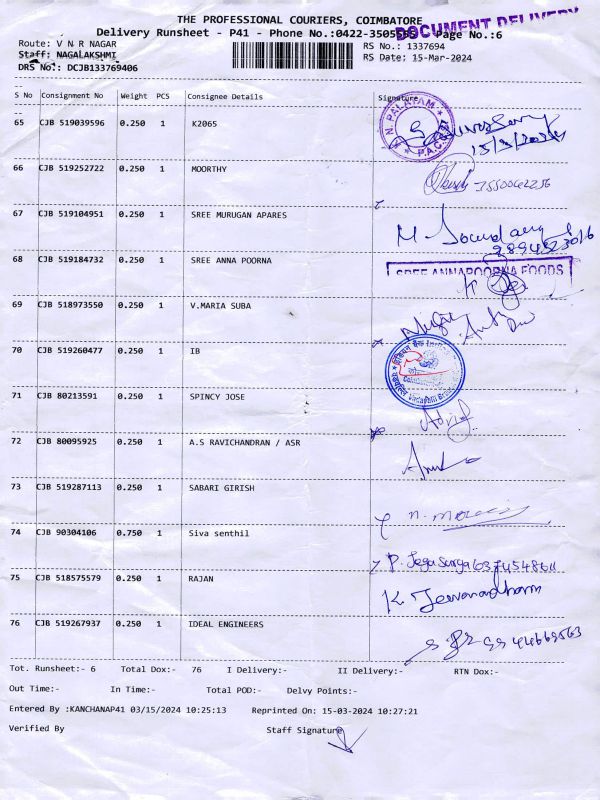 THE PROFESSIONAL COURIERS, COIMBATORE
DOCUMENT DELIVERY
Delivery Runsheet - P41 - Phone No.:0422-3505 Page No.:6
Route: V N R NAGAR RS No.: 1337694
Staff: NAGALAKSHMI RS Date: 15-Mar-2024
DRS No.: DCJB133769406
S No Consignment No Weight PCS Consignee Details Signature
65 CJB 519039596 0.250 1 K2065
15/3/2024
66 CJB 519252722 0.250 1 MOORTHY
67 CJB 519104951 0.250 1 SREE MURUGAN APARES
68 CJB 519184732 0.250 1 SREE ANNA POORNA
SREE ANNAPOORNA FOODS
69 CJB 518973550 0.250 1 V.MARIA SUBA
70 CJB 519260477 0.250 1 IB
71 CJB 80213591 0.250 1 SPINCY JOSE
72 CJB 80095925 0.250 1 A.S RAVICHANDRAN / ASR
73 CJB 519287113 0.250 1 SABARI GIRISH
74 CJB 90304106 0.750 1 Siva senthil
75 CJB 518575579 0.250 1 RAJAN
K. Jeevanadham
76 CJB 519267937 0.250 1 IDEAL ENGINEERS
Tot. Runsheet:- 6 Total Dox:- 76 I Delivery:- II Delivery:- RTN Dox:-
Out Time:- In Time:- Total POD:- Delvy Points:-
Entered By :KANCHANAP41 03/15/2024 10:25:13 Reprinted On: 15-03-2024 10:27:21
Verified By Staff Signature